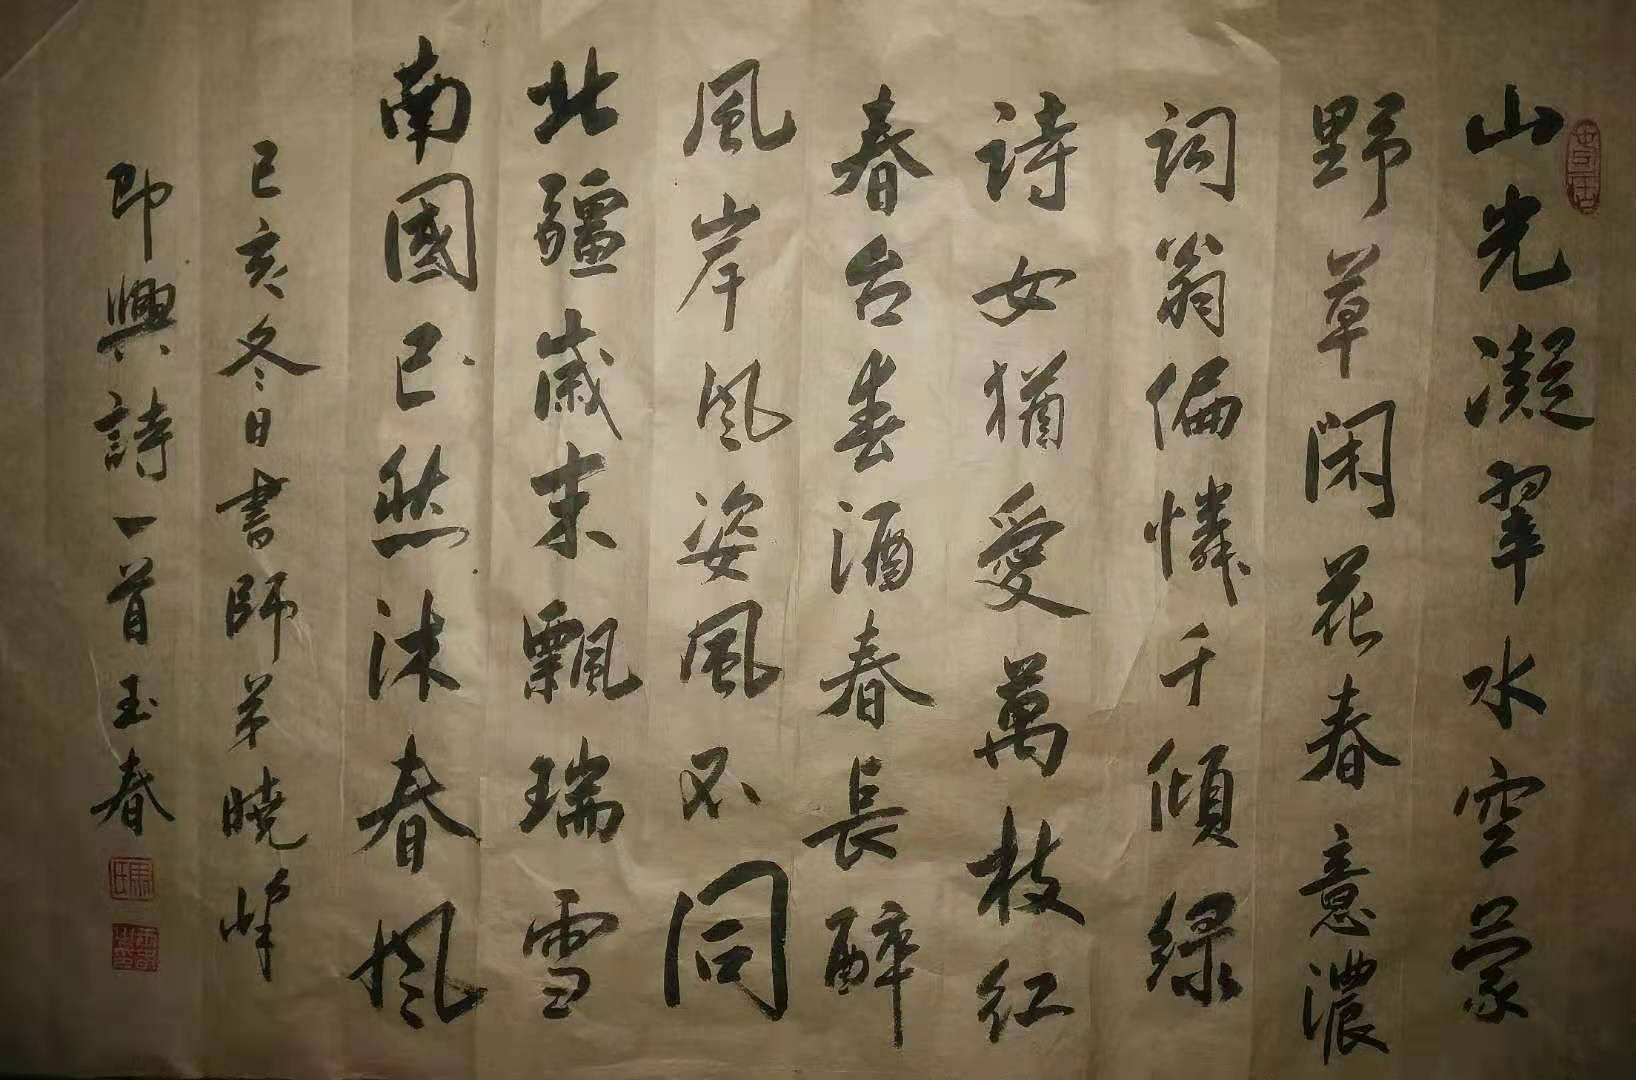 山光凝翠水空蒙
野草闲花春意濃
词翁偏憐千傾绿
诗女猶愛萬枝红
春台春酒春長醉
風岸風姿風不同
北疆歲末飄瑞雪
南國已然沐春風
己亥冬日書師弟曉峰
即興詩一首玉春